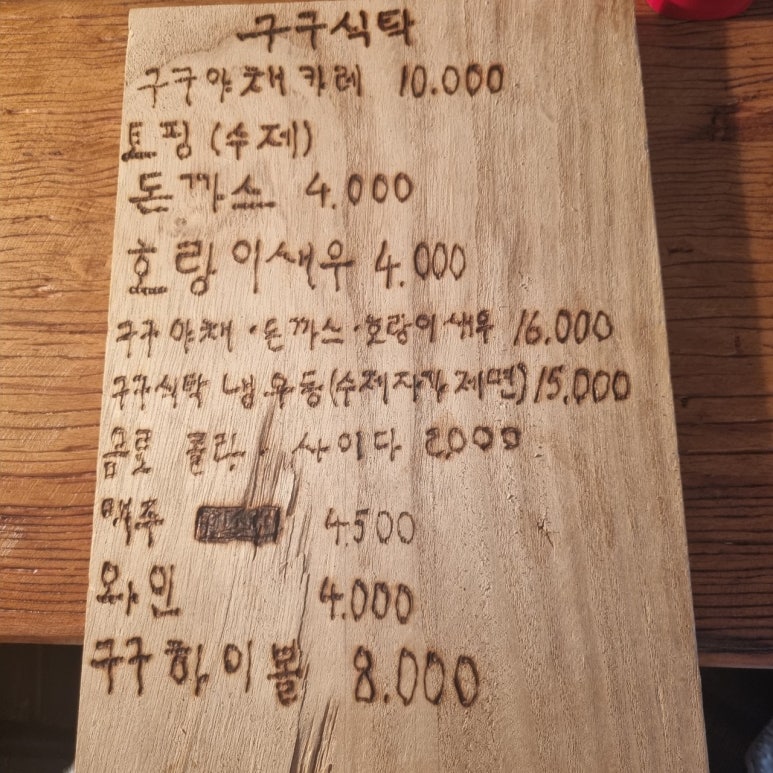 구구식탁
구구야채카레 10.000
토핑 (수제)
돈까스 4.000
호랑이새우 4.000
구구야채 · 돈까스 · 호랑이새우 16.000
구구식탁 냄비우동(수제자가제면) 15.000
콜라 · 사이다 2,000
맥주 4.500
와인 4.000
구구하이볼 8.000